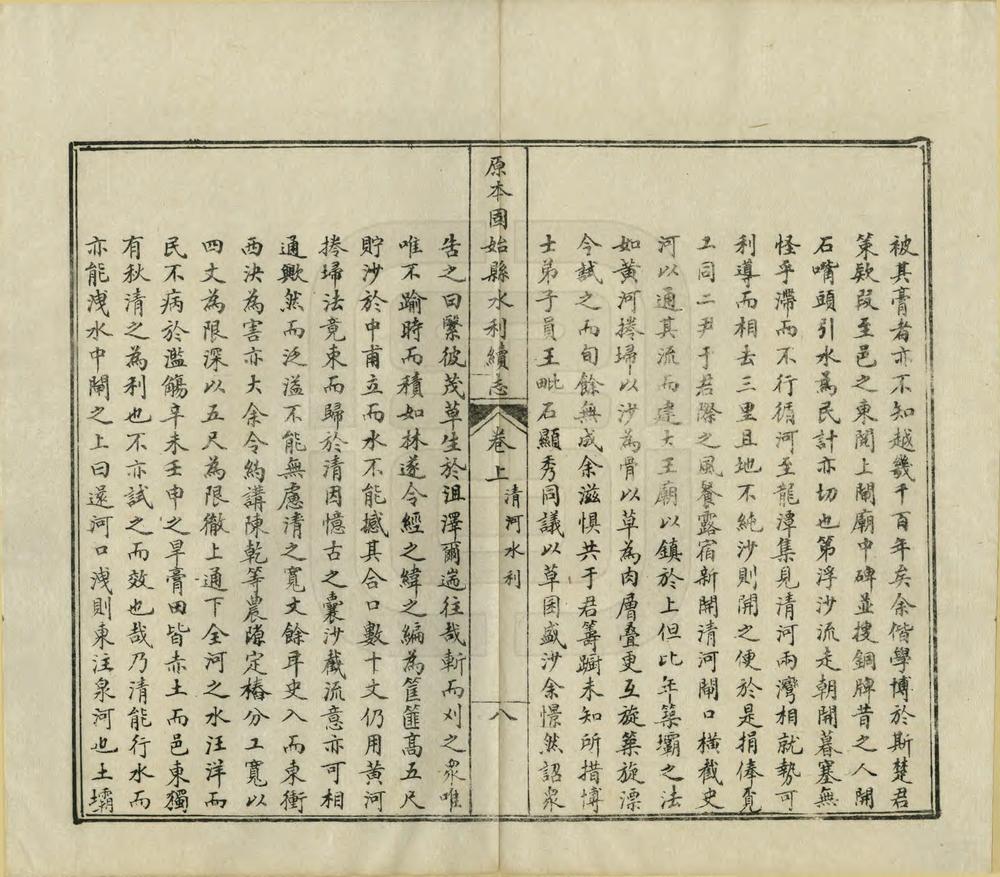 被其膏者亦不知越幾千百年矣余偕學博於斯楚君
策欵段至邑之東関上閘廟中碑並搜銅牌昔之人開
石嘴頭引水爲民計亦切也第浮沙流走朝開暮塞無
怪乎滯而不行循河至龍潭集見清河兩灣相就勢可
利導而相去三里且地不純沙則開之便於是捐俸覔
工同二尹于君際之風餐露宿新開清河閘口橫截史
河以通其流而建大王廟以鎮於上但比年築壩之法
如黄河捲埽以沙為骨以草為肉層叠更互旋築旋漂
今試之而旬餘無成余滋懼共于君籌蹰未知所措博
士弟子員王毗石顯秀同議以草囤盛沙余憬然詔衆
原本固始縣水利續志
卷上
清河水利
八
告之曰繄彼茂草生於沮澤爾遄往哉斬而刈之衆唯
唯不踰時而積如林遂令經之緯之編為筐篚高五尺
貯沙於中甫立而水不能撼其合口數十丈仍用黄河
捲埽法竟東而歸於清因憶古之囊沙截流意亦可相
通歟然而泛溢不能無慮清之寬丈餘耳史入而東衝
西決為害亦大余令約講陳乾等農隙定樁分工寬以
四丈為限深以五尺為限徹上通下全河之水汪洋而
民不病於濫觴辛未壬申之旱膏田皆赤土而邑東獨
有秋清之為利也不亦試之而效也哉乃清能行水而
亦能洩水中閘之上曰還河口洩則東注泉河也土壩